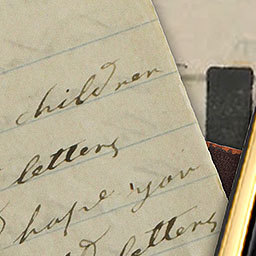 children
letters
hope you
letters